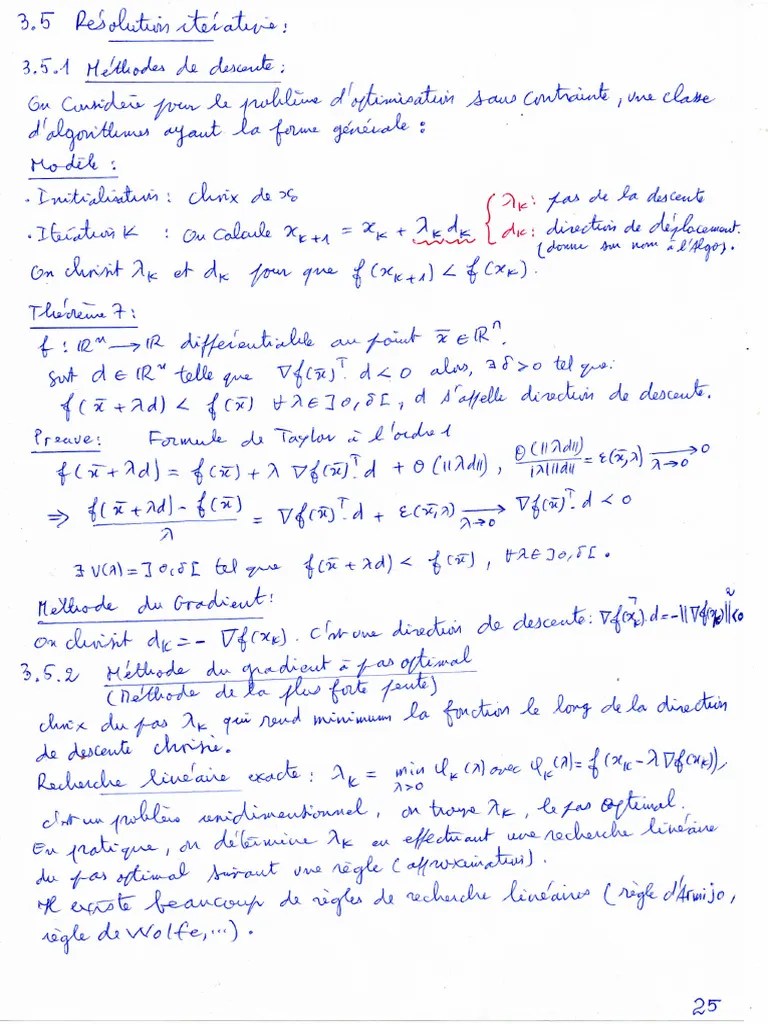 3.5 Résolution itérative :
3.5.1 Méthodes de descente :
On Considère pour le problème d'optimisation sans contrainte, une classe
d'algorithmes ayant la forme générale :
Modèle :
• Initialisation : choix de x₀
λ_K : pas de la descente
• Itération K : on calcule x_{K+1} = x_K + λ_K d_K
d_K : direction de déplacement.
(donne son nom à l'Algo).
On choisit λ_K et d_K pour que f(x_{K+1}) < f(x_K).
Théorème 7 :
f : ℝⁿ → ℝ différentiable au point x̄ ∈ ℝⁿ.
Soit d ∈ ℝⁿ telle que ∇f(x̄)ᵀ. d < 0 alors, ∃ δ > 0 tel que :
f(x̄ + λd) < f(x̄) ∀ λ ∈ ]0, δ[, d s'appelle direction de descente.
Preuve : Formule de Taylor à l'ordre 1
f(x̄ + λd) = f(x̄) + λ ∇f(x̄)ᵀ. d + O(||λd||), O(||λd||) / |λ| ||d|| = ε(x̄, λ) → 0 λ→0
⇒ f(x̄ + λd) - f(x̄) / λ = ∇f(x̄)ᵀ. d + ε(x̄, λ) → λ→0 ∇f(x̄)ᵀ. d < 0
∃ V(λ) = ]0, δ[ tel que f(x̄ + λd) < f(x̄), ∀ λ ∈ ]0, δ[.
Méthode du Gradient :
On choisit d_K = - ∇f(x_K). C'est une direction de descente : ∇f(x_K)ᵀ. d = -||∇f(x_K)||² < 0
3.5.2 Méthode du gradient à pas optimal
(Méthode de la plus forte pente)
choix du pas λ_K qui rend minimum la fonction le long de la direction
de descente choisie.
Recherche linéaire exacte : λ_K = min λ>0 φ_K(λ) avec φ_K(λ) = f(x_K - λ ∇f(x_K)),
c'est un problème unidimensionnel, on trouve λ_K, le pas optimal.
En pratique, on détermine λ_K en effectuant une recherche linéaire
du pas optimal suivant une règle (approximation).
Il existe beaucoup de règles de recherche linéaires (règle d'Armijo,
règle de Wolfe, ...).
25